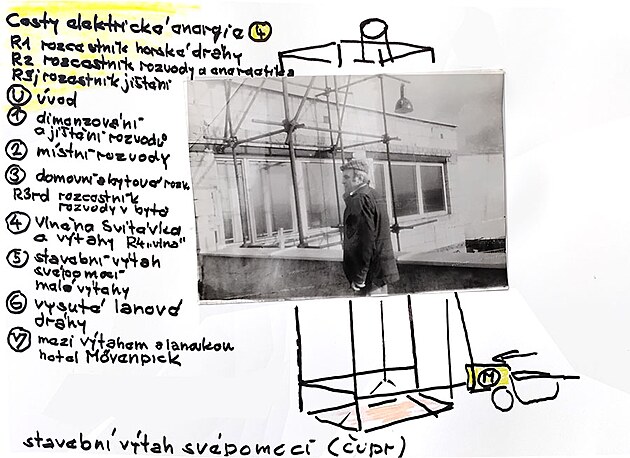 Cesty elektrické energie 4
R1 rozcestník horské dráhy
R2 rozcestník rozvody a energetika
R3j rozcestník jištění
U úvod
1 dimenzování
a jištění rozvodů
2 místní rozvody
3 domovní a bytové rozv.
R3rd rozcestník
rozvody v bytě
4 Vlněna Svitávka
a výtahy R4 „vlna"
5 stavební výtah
svépomocí
malé výtahy
6 vysuté lanové
dráhy
7 mezi výtahem a lanovkou
hotel Mövenpick
M
stavební výtah svépomocí (čvpr)